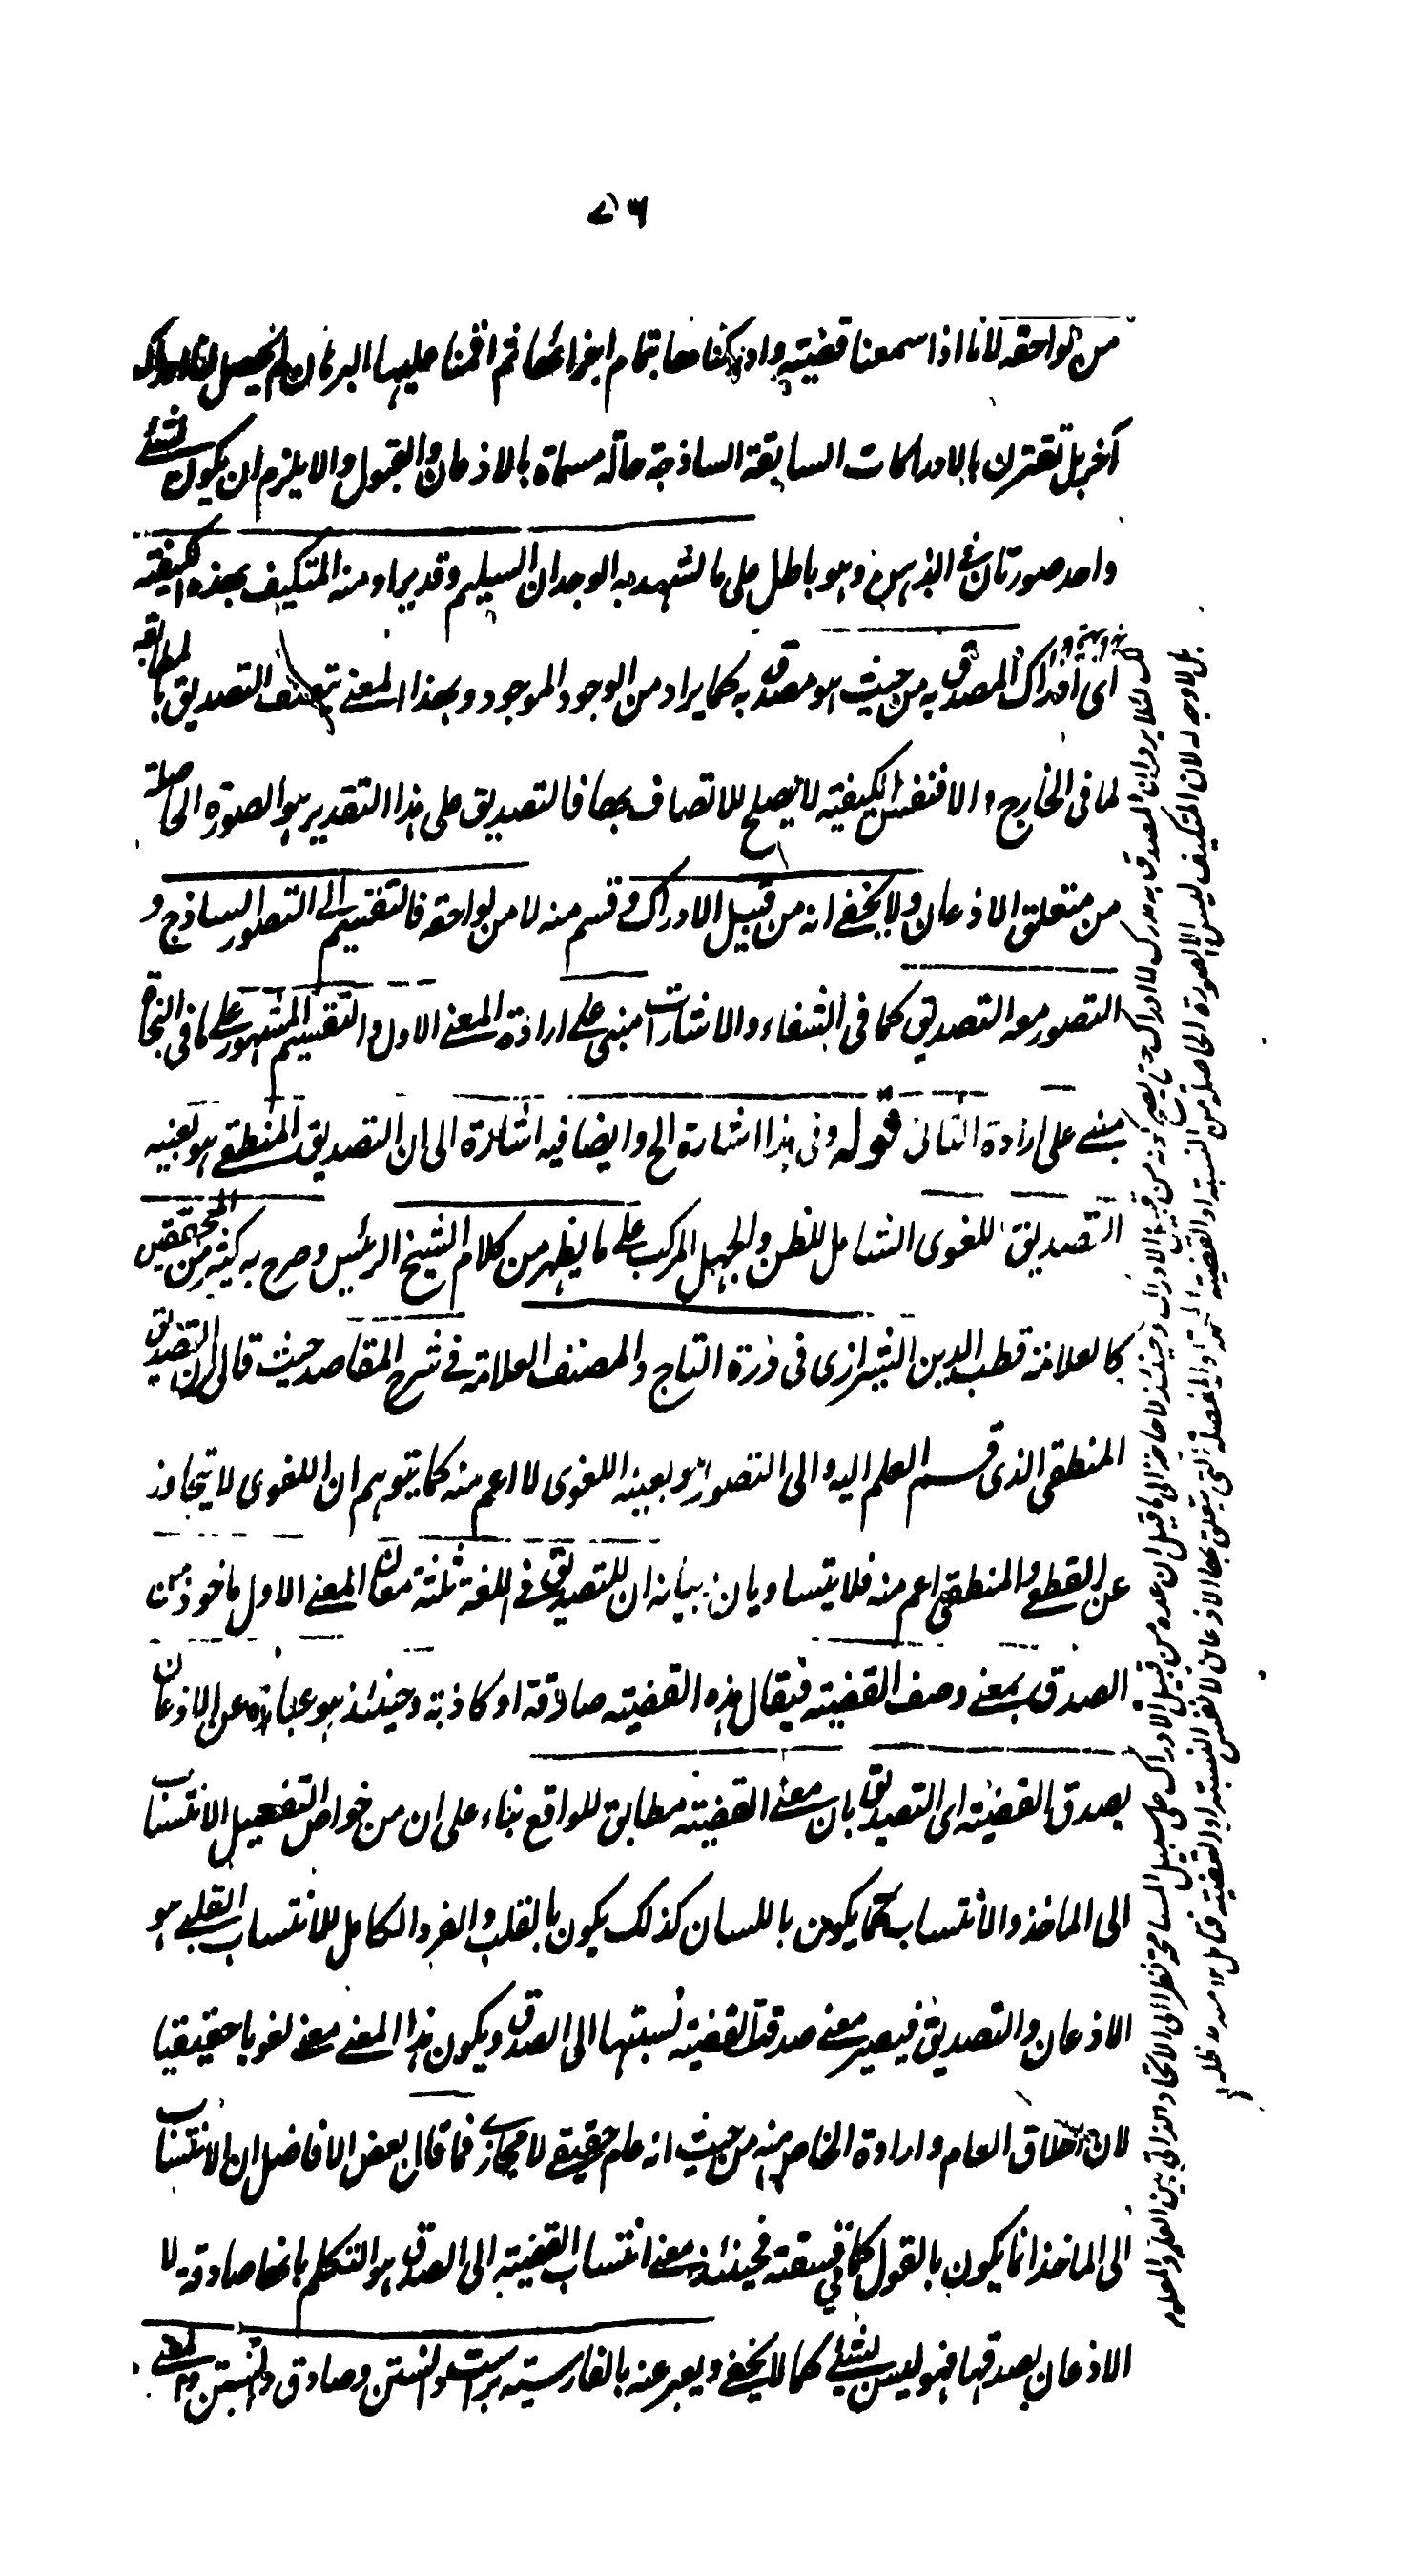 ٧٦
من لواحقه لانا اذا سمعنا قضيته وادركناها بتمام اجزائها ثم اقمنا عليها البرهان لم يحصل لنا ادراك
آخر بل تقترن بالادراكات السابقة الساذجة حالة مسماة بالاذعان والقبول والا يلزم ان يكون لشئ
واحد صورتان في الذهن وهو باطل على ما يشهد به الوجدان السليم وقد يراد منه المتكيف بهذه الكيفية
اى ادراك المصدق به من حيث هو مصدق به كما يراد من الوجود الموجود وبهذا المعنے يتصف التصديق بالمطابقة
لما فى الخارج والا فنفس الكيفية لا يصلح للاتصاف بها فالتصديق على هذا التقدير هو الصورة الحاصلة
من متعلق الاذعان ولا يخفے انه من قبيل الادراك وقسم منه لا من لواحقه فالتقسيم الى التصور الساذج و
التصور معه التصديق كما فى الشفاء والاشارات مبنى علے ارادة المعنے الاول والتقسيم المشهور علے ما فى النجاة
مبنے على ارادة الثانى قوله وفى هذا اشارة الخ وايضا فيه اشارة الى ان التصديق المنطقے هو بعينه
التصديق اللغوى الشامل للظن والجهل المركب علے ما يظهر من كلام الشيخ الرئيس وصرح به كثير من المحققين
كالعلامة قطب الدين الشيرازى فى درة التاج والمصنف العلامة فے شرح المقاصد حيث قال ان التصديق
المنطقى الذى قسم العلم اليه والى التصور هو بعينه اللغوى لا اعم منه كما يتوهم ان اللغوى لا يتجاوز
عن القطعے والمنطقى اعم منه فلا يتساويان بيانه ان للتصديق فے اللغة ثلثة معان المعنے الاول ماخوذ من
الصدق بمعنے وصف القضيته فيقال هذه القضيته صادقة او كاذبة وحينئذ هو عبارة عن الاذعان
بصدق القضيته اى التصديق بان معنے القضيته مطابق للواقع بناء على ان من خواص التفعيل الانتساب
الى الماخذ والانتساب كما يكون باللسان كذلك يكون بالقلب والفرد الكامل للانتساب القلبے هو
الاذعان والتصديق فيصير معنے صدقت القضيته نسبتها الى الصدق ويكون هذا المعنے معنے لغويا حقيقيا
لان اطلاق العام وارادة الخاص منه من حيث انه عام حقيقے لا مجازے فما قال بعض الافاضل ان الانتساب
الى الماخذ انما يكون بالقول كما فى فسقته فحينئذ معنے انتساب القضيته الى الصدق هو التكلم بانها صادقة لا
الاذعان بصدقها فهو ليس بشئے كما لا يخفے ويعبر عنه بالفارسيته براست دانستن وصادق دانستن
لئلا يرد ان المصدق به مدرك لا ادراك من قبيل الادراك وحينئذ لا حاجة الى ما قيل ان عده من قبيل الادراك على سبيل المسامحة نظرا الى الاتحاد الذاتى بين العلم والمعلوم
بل لا وجه له لان المتكيف ليس الا الصورة الحاصلة من النسبته او القضيته التى يتعلق بها الاذعان لا نفس النسبته او القضيته فتامل ١٢ منه مد ظله